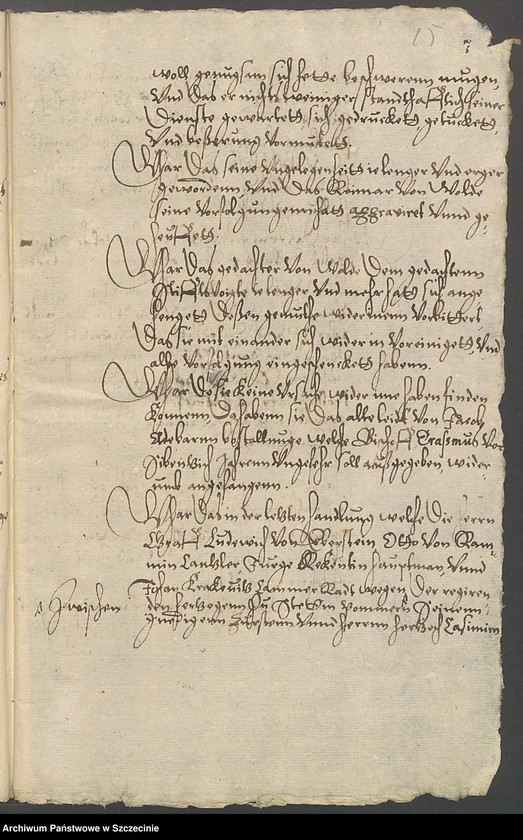 15
3
woll genugsam sich hette beschwerenn mugen,
Vnd das er nichts weiniger standthafftich seiner
Dienste gewartett, sich gedruckett, getuckett,
Vnd besserung vormutett.
Whar das seine Vngelegenheit ie lenger Vnd erger
gewordenn Vnd das Reimar Von Wolde
seine Vorfolgung hatt aggraviret Vnnd ge-
heuffett.
Whar das gedachter Von Wolde Dem gedachtenn
Stifftsvoigte ie lenger Vnd mehr hatt sich ange
hengett, dessen gemuthe wider Vorbittert
Das sie mit einander sich wider in Voreinigett, Vnd
alse Vorfolgung eingeschenckett habenn.
Whar do sie keine Vrsach wider ine haben finden
konnenn, Da habenn sie das alte leidt Von Jacob
Adebarnn bestallunge, welche Bischoff Erasmus Vor
Jarenn Vngefehr soll aussgegeben, wider-
umb angefangenn.
Whar das in der letzten handlung welche die herrn
Graff Ludewich Von Eberstein Otto Von Ram-
min Cantzler, Jurge Rekentin hauptman, Vnnd
Johan Krakeuitz Cammer Radt wegen der regiren
den hertzogenn zu Stettin Pommern Seinem
Zwischen
gnedigenn Furstenn Vnnd herrnn hertzoch Casimirn
Archiwum Państwowe w Szczecinie